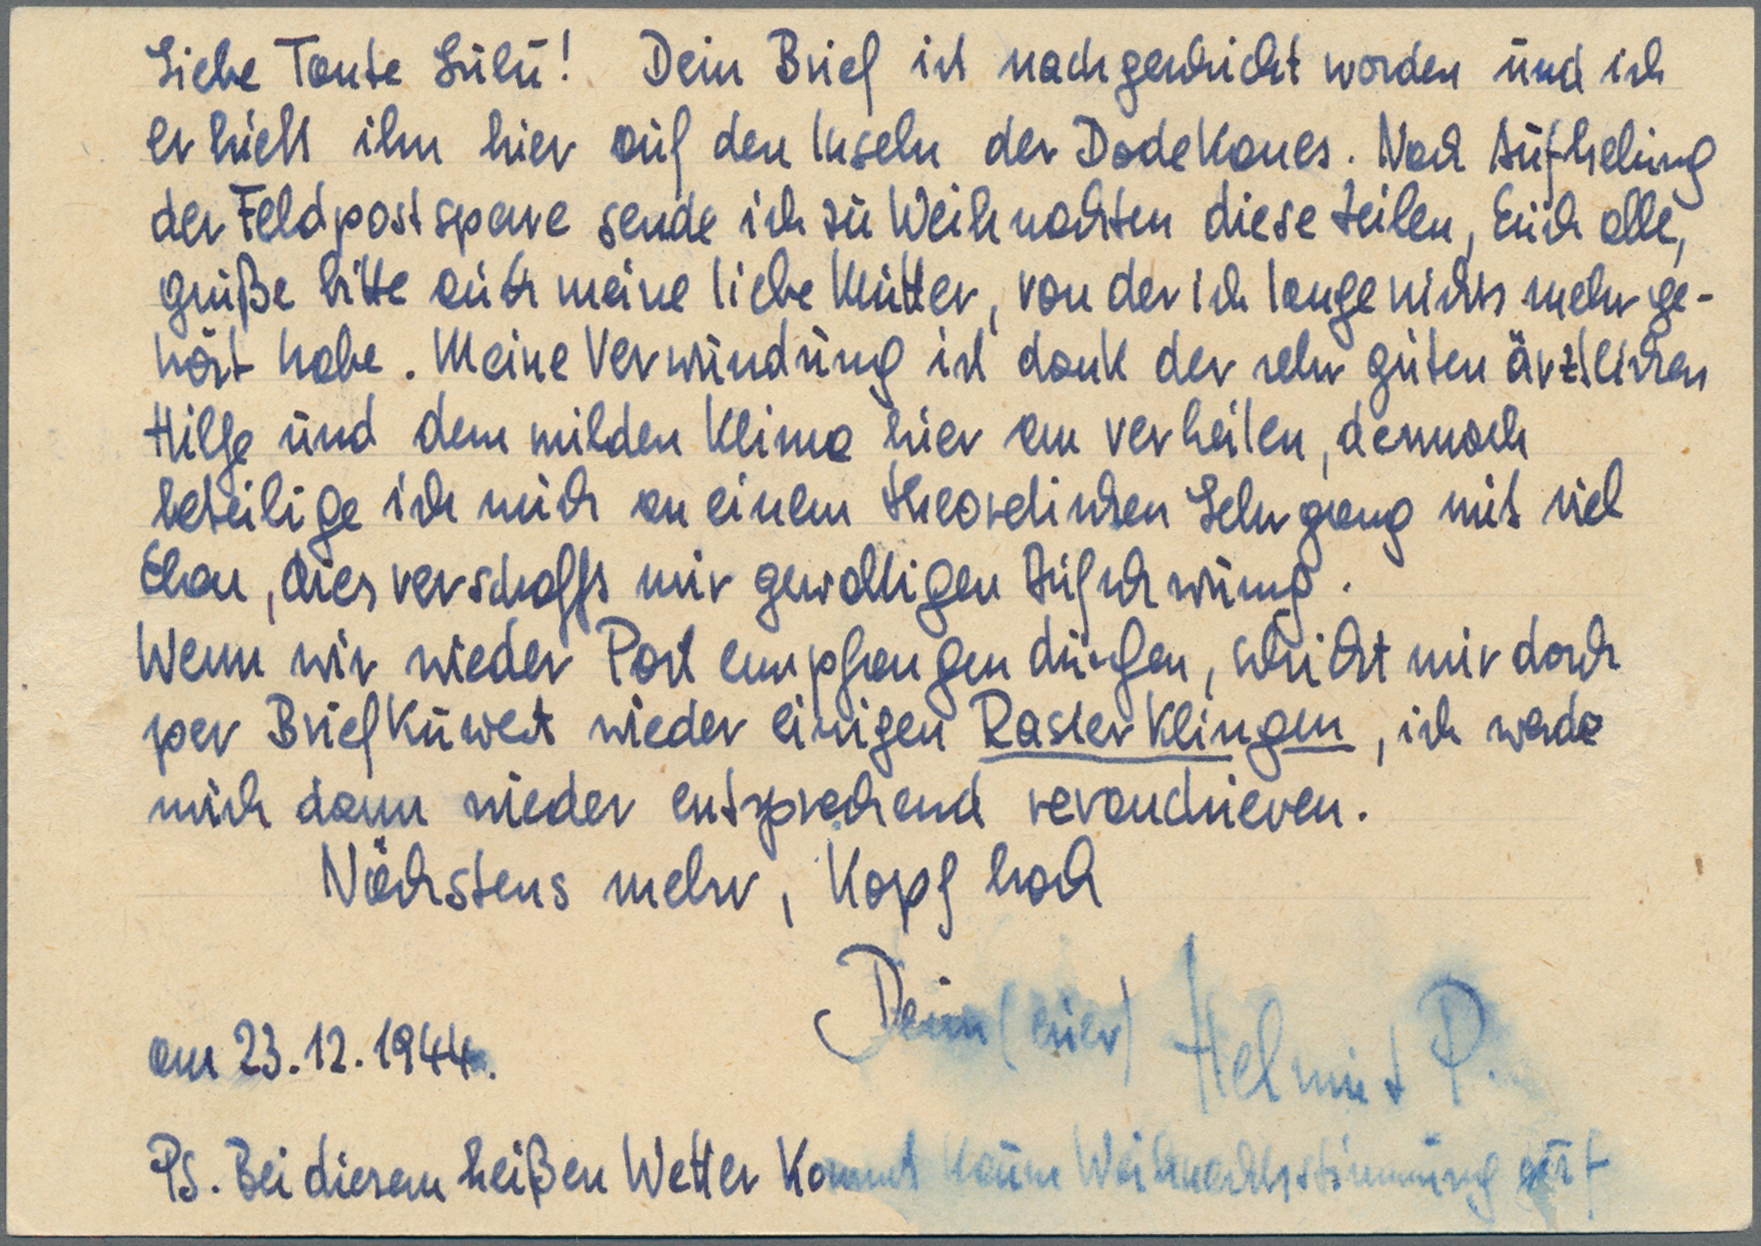 Liebe Tante Lulu! Dein Brief ist nachgeschickt worden und ich
erhielt ihn hier auf den Inseln der Dodekanes. Nach Aufhebung
der Feldpostsperre sende ich zu Weihnachten diese Zeilen, Euch alle,
grüße bitte auch meine liebe Mutter, von der ich lange nichts mehr ge-
hört habe. Meine Verwundung ist dank der sehr guten ärztlichen
Hilfe und dem milden Klima hier am verheilen, dennoch
beteilige ich mich an einem theoretischen Lehrgang mit viel
Elan, dies verschafft mir gewaltigen Aufschwung.
Wenn wir wieder Post empfangen dürfen, schickt mir doch
per Briefkuwert wieder einigen Rasierklingen, ich werde
mich dann wieder entsprechend revanchieren.
Nächstens mehr, Kopf hoch
Dein (euer) Helmut P.
am 23.12.1944.
PS. Bei diesem heißen Wetter kommt kaum Weihnachtsstimmung auf